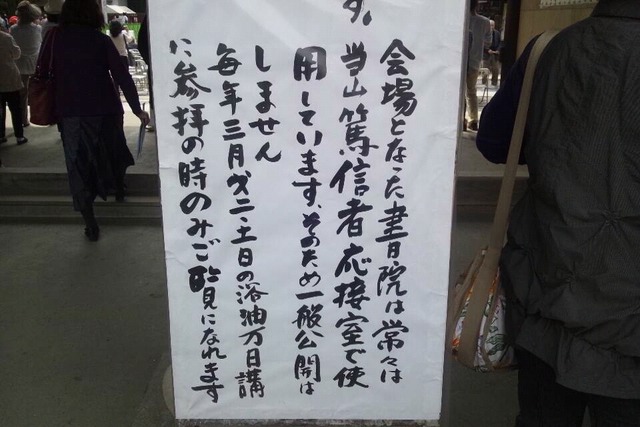 す。
会場となった書院は常々は
当山篤信者応接室で使
用しています、そのため一般公開は
しません
毎年三月第二・土日の浴油万日講
に参拝の時のみご覧になれます